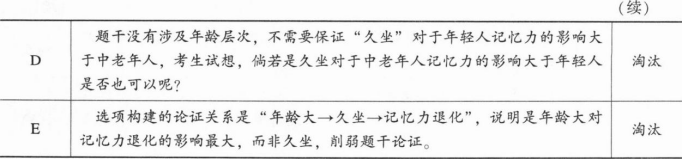 (续)
题干没有涉及年龄层次，不需要保证“久坐”对于年轻人记忆力的影响大
D 于中老年人，考生试想，倘若是久坐对于中老年人记忆力的影响大于年轻人 淘汰
是否也可以呢？
E 选项构建的论证关系是“年龄大→久坐→记忆力退化”，说明是年龄大对 淘汰
记忆力退化的影响最大，而非久坐，削弱题干论证。